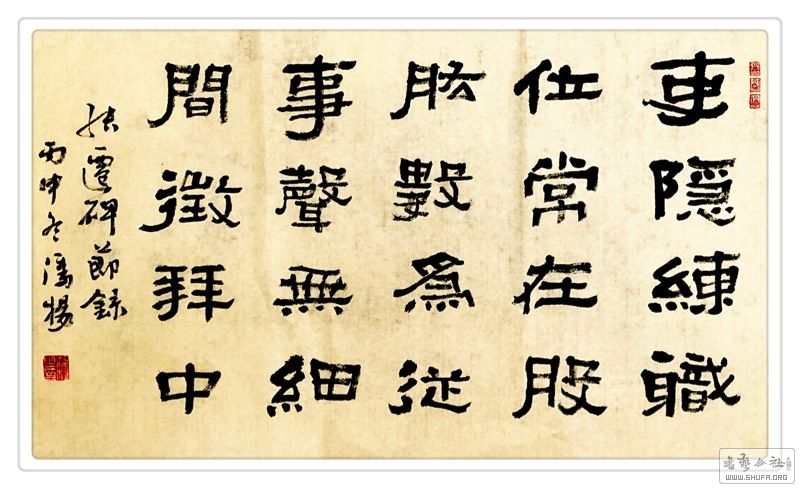 吏隱練職
位常在股
肱數為從
事聲無細
間徵拜中
張遷碑節錄
丙申冬潘楊
書藝公社
WWW.SHUFA.ORG